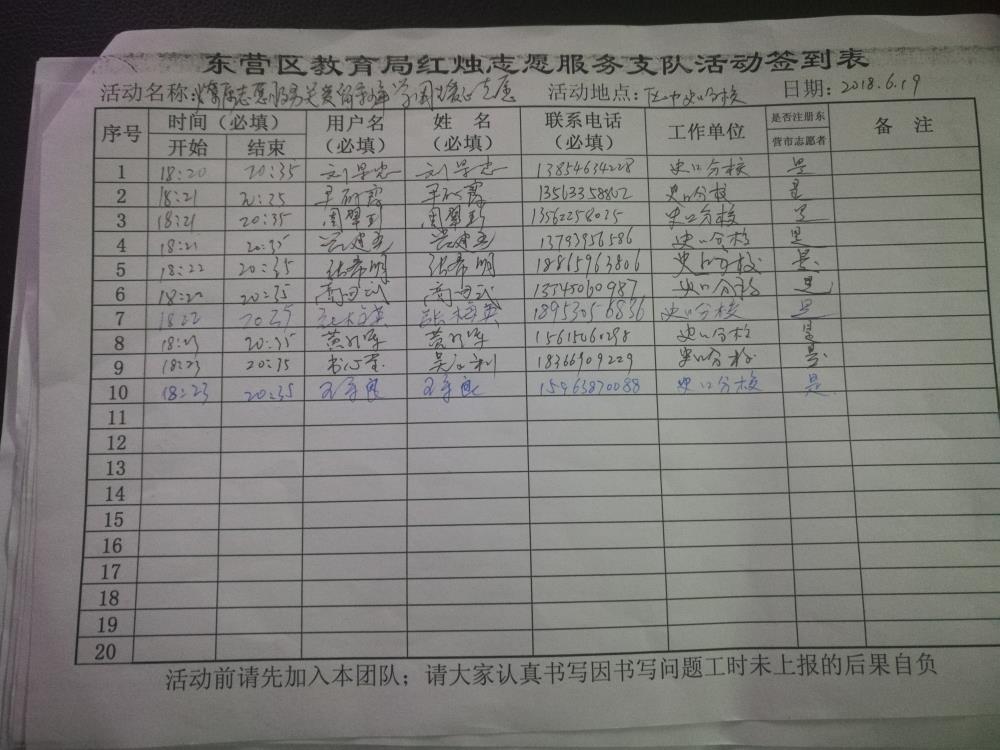 东营区教育局红烛志愿服务支队活动签到表
活动名称: 志愿服务关爱留守 活动地点: 史口分校 日期: 2018.6.19
序号 时间（必填） 用户名（必填） 姓 名（必填） 联系电话（必填） 工作单位 是否注册东营市志愿者 备 注
开始 结束
1 18:20 20:35 刘学忠 刘学忠 13854634228 史口分校 是
2 18:21 20:35 13563358802 史口分校 是
3 18:21 20:35 周翠彩 周翠彩 13562258025 史口分校 是
4 18:21 20:35 13793956586 史口分校 是
5 18:22 20:35 张希明 张希明 18865963806 史口分校 是
6 18:22 20:35 13545060987 史口分校 是
7 18:22 20:35 18953056836 史口分校 是
8 18:23 20:35 15615060298 史口分校 是
9 18:23 20:35 18366909229 史口分校 是
10 18:23 20:35 15963870088 史口分校 是
11
12
13
14
15
16
17
18
19
20
活动前请先加入本团队；请大家认真书写因书写问题工时未上报的后果自负